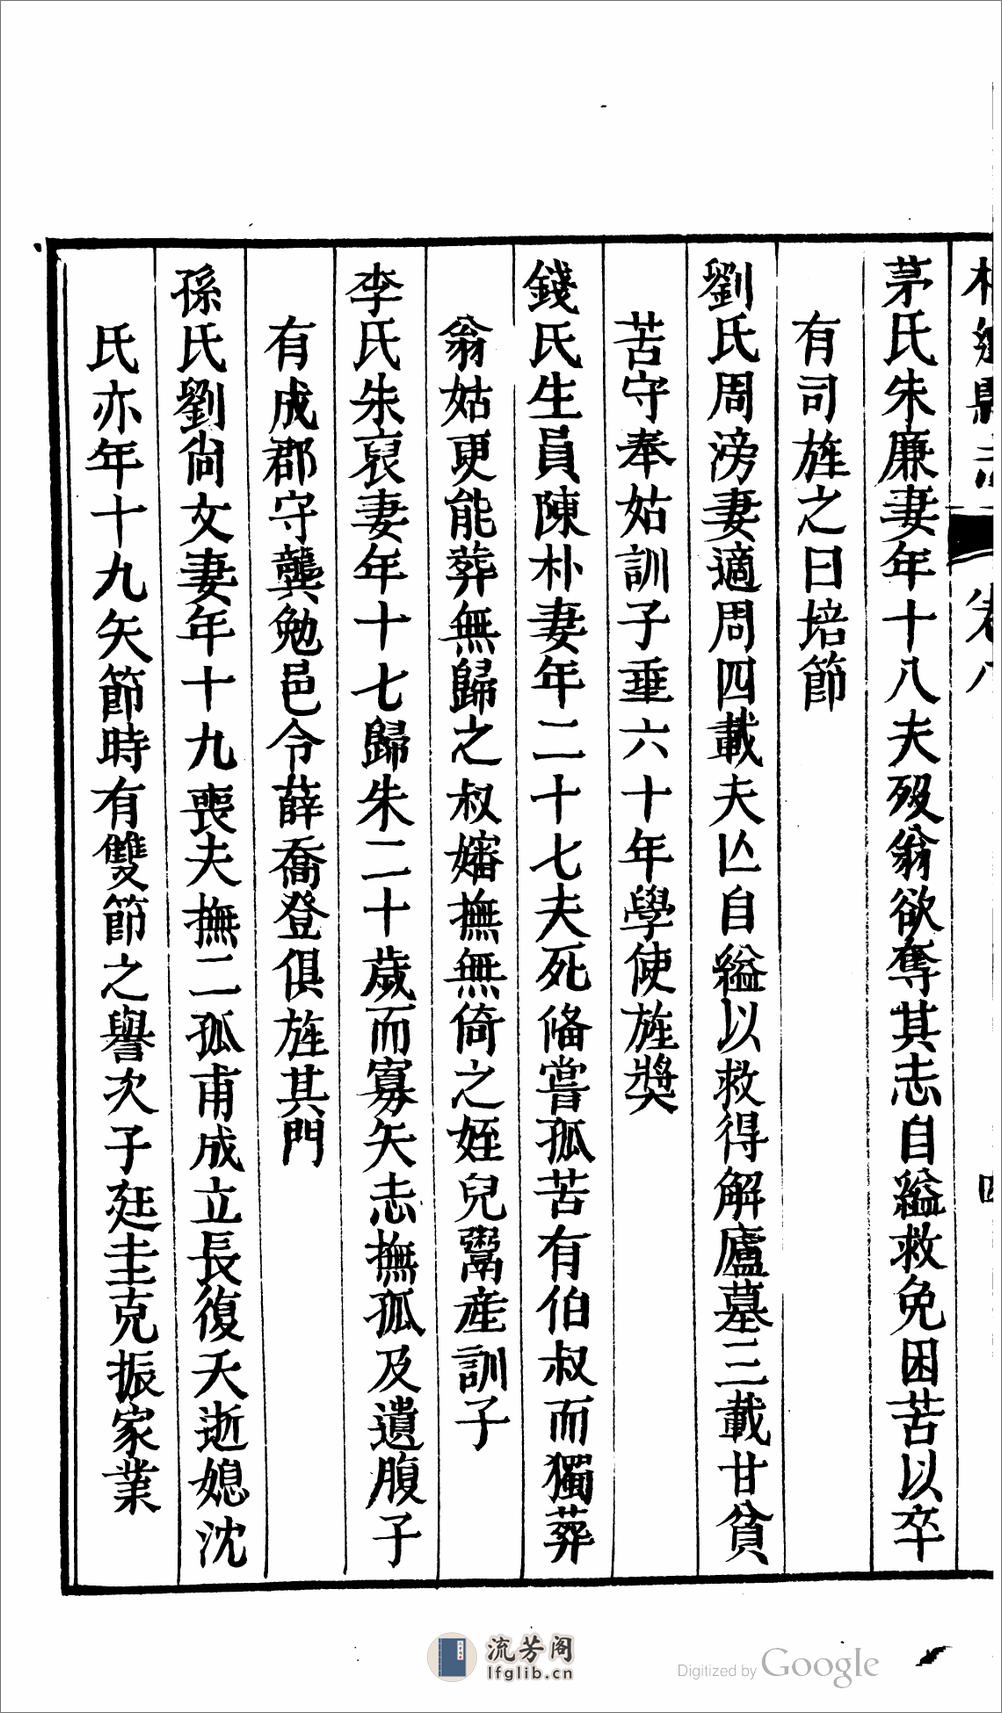 茅氏朱廉妻年十八夫歿翁欲奪其志自縊救免困苦以卒
有司旌之曰培節
劉氏周滂妻適周四載夫亾自縊以救得解廬墓三載甘貧
苦守奉姑訓子垂六十年學使旌奬
錢氏生員陳朴妻年二十七夫死俻嘗孤苦有伯叔而獨葬
翁姑更能葬無歸之叔嬸撫無倚之姪兒鬻産訓子
李氏朱裒妻年十七歸朱二十歲而寡矢志撫孤及遺腹子
有成郡守龔勉邑令薛喬登俱旌其門
孫氏劉尙文妻年十九喪夫撫二孤甫成立長復夭逝媳沈
氏亦年十九矢節時有雙節之譽次子廷圭克振家業
流芳阁
lfglib.cn
Digitized by Google